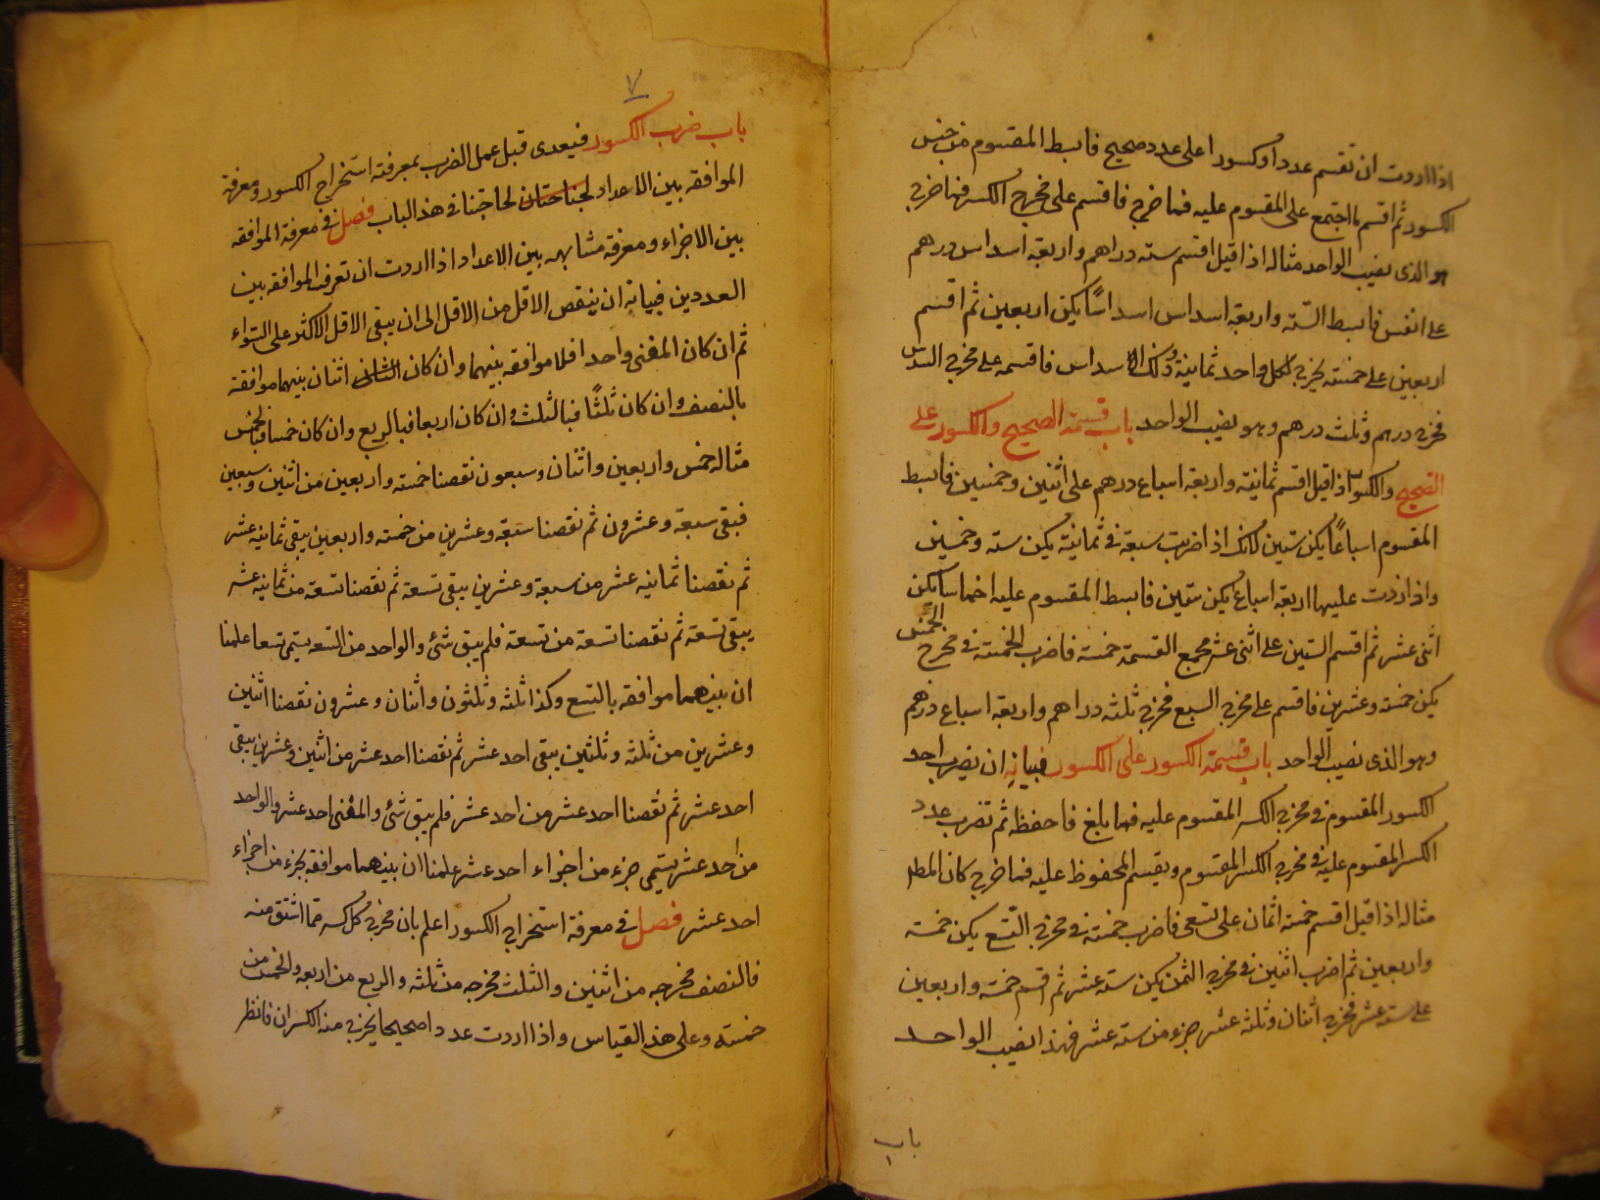 اذا اردت ان تقسم عددا او كسورا على عدد صحيح فابسط المقسوم من جنس
الكسور ثم اقسم ما اجتمع على المقسوم عليه فما خرج فاقسم على مخرج الكسر فما خرج
هو الذى نصيب الواحد مثاله اذا قيل اقسم سته دراهم واربعة اسداس درهم
على انفس فابسط الستة واربعة اسداس اسداسًا يكن اربعين ثم اقسم
اربعين على خمسته يخرج لكل واحد ثمانية وذلك الاسداس فاقسمه على مخرج السدس
فخرج درهم وثلث درهم وهو نصيب الواحد باب قسمة الصحيح والكسور على
الصحيح والكسور اذا قيل اقسم ثمانية واربعة اسباع درهم على اثنين وخمسين فابسط
المقسوم اسباعًا يكن ستين لانك اذا ضربت سبعة فى ثمانية يكن ستة وخمسين
واذا زدت عليها اربعة اسباع يكن ستين فابسط المقسوم عليه اخماسا يكن
اثنى عشر ثم اقسم الستين على اثنى عشر مجمع القسمة خمسة فاضرب الخمسة فى مخرج الخمس
يكن خمسة وعشرين فاقسم على مخرج السبع فخرج ثلثة دراهم واربعة اسباع درهم
وهو الذى نصيب الواحد باب قسمة الكسور على الكسور فبيانه ان يضرب احد
الكسور المقسوم فى مخرج الكسر المقسوم عليه فما بلغ فاحفظه ثم تضرب عدد
الكسر المقسوم عليه فى مخرج الكسر المقسوم ويقسم المحفوظ عليه فما خرج كان المطل
مثاله اذا قيل اقسم خمسة اثمان على تسعى فاضرب خمسة فى مخرج التسع يكن خمسة
واربعين ثم اضرب اثنين فى مخرج الثمن يكن ستة عشر ثم اقسم خمسة واربعين
على ستة عشر فخرج اثنان وثلثة عشر جزء من ستة عشر فهذا نصيب الواحد
باب
٧
باب ضرب الكسور فيعدى قبل عمل الضرب بمعرفته استخراج الكسور ومعرفة
الموافقة بين الاعداد لحاجتنا فى هذا الباب فصل فى معرفة الموافقه
بين الاجزاء ومعرفة مشابهه بين الاعداد اذا اردت ان تعرف الموافقة بين
العددين فبيانه ان ينقص الاقل من الاقل الى ان يبقى الاقل الاكثر على السواء
ثم ان كان المفنى واحدا فلا موافقه بينهما وان كان الثانى اثنان بينهما موافقة
بالنصف وان كان ثلثًا فبالثلث وان كان اربعا فبالربع وان كان خمسا فبالخمس
مثاله خمس واربعين واثنان وسبعون نقصنا خمسته واربعين من اثنين وسبعين
فبقى سبعة وعشرون ثم نقصنا سبعة وعشرين من خمسته واربعين يبقى ثمانيه عشر
ثم نقصنا ثمانيه عشر من سبعة وعشرين يبقى تسعة ثم نقصنا تسعة من ثمانيه عشر
يبقى تسعة ثم نقصنا تسعة من تسعة فلم يبق شئ والواحد من التسعه يسمى تسعا علمنا
ان بينهما موافقه بالتسع وكذا ثلثه وثلثون واثنان وعشرون نقصنا اثنين
وعشرين من ثلثه وثلثين يبقى احد عشر ثم نقصنا احد عشر من اثنين وعشرين يبقى
احد عشر ثم نقصنا احد عشر من احد عشر فلم يبق شئ والمفنى احد عشر والواحد
من احد عشر يسمى جزء من اجزاء احد عشر علمنا ان بينهما موافقه بجزء من اجزاء
احد عشر فصل فى معرفة استخراج الكسور اعلم بان مخرج كل كسر مما اشتق منه
فالنصف مخرجه من اثنين والثلث مخرجه من ثلثه والربع من اربعه والخمس من
خمسته وعلى هذا القياس واذا اردت عددا صحيحا يخرج منه الكسران فانظر